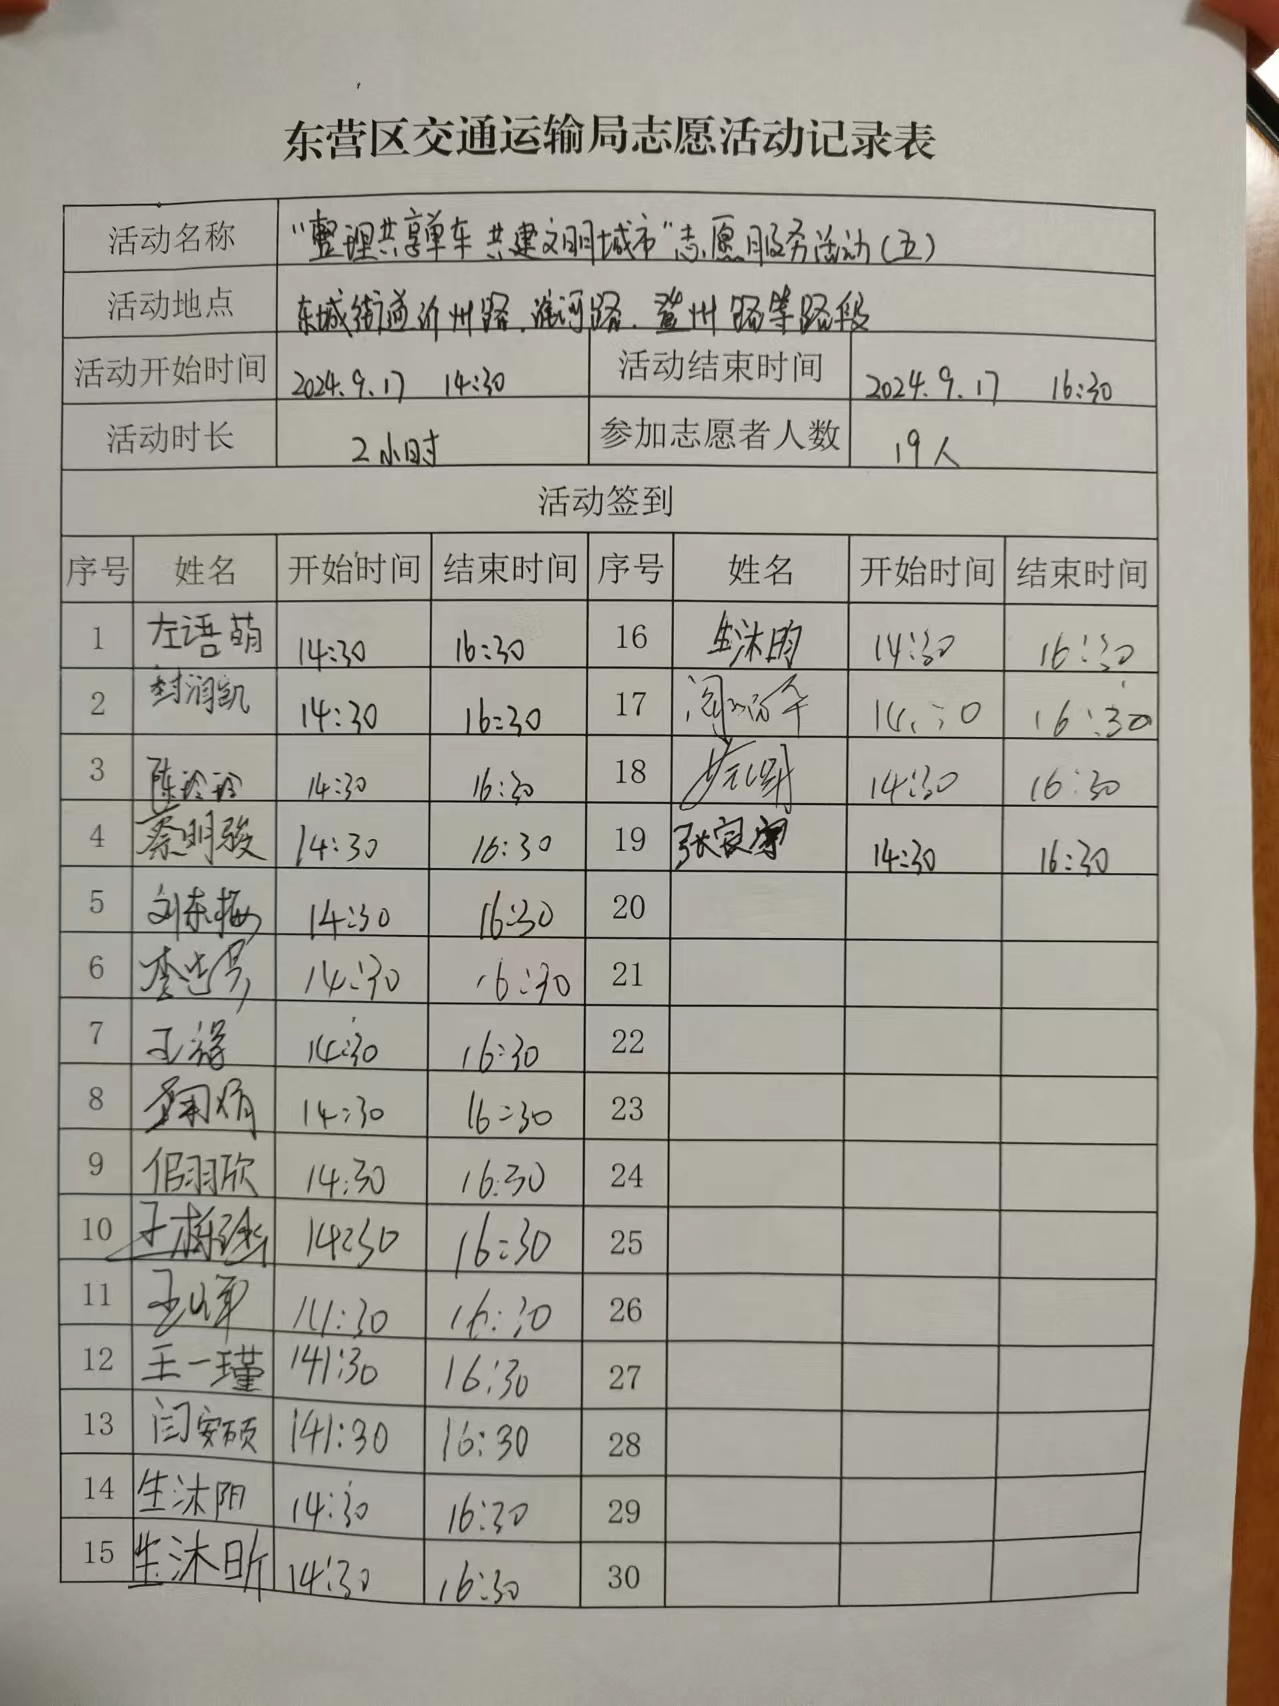 东营区交通运输局志愿活动记录表
活动名称 “整理共享单车 共建文明城市”志愿服务活动(五)
活动地点 东城街道沂州路、淮河路、登州路等路段
活动开始时间 2024.9.17 14:30 活动结束时间 2024.9.17 16:30
活动时长 2小时 参加志愿者人数 19人
活动签到
序号 姓名 开始时间 结束时间 序号 姓名 开始时间 结束时间
1 左语萌 14:30 16:30 16 生沐昀 14:30 16:30
2 封润凯 14:30 16:30 17 14:30 16:30
3 陈玲玲 14:30 16:30 18 14:30 16:30
4 蔡明骏 14:30 16:30 19 14:30 16:30
5 刘东梅 14:30 16:30 20
6 14:30 16:30 21
7 14:30 16:30 22
8 14:30 16:30 23
9 14:30 16:30 24
10 14:30 16:30 25
11 14:30 16:30 26
12 王一瑾 14:30 16:30 27
13 闫安硕 14:30 16:30 28
14 生沐阳 14:30 16:30 29
15 生沐昕 14:30 16:30 30